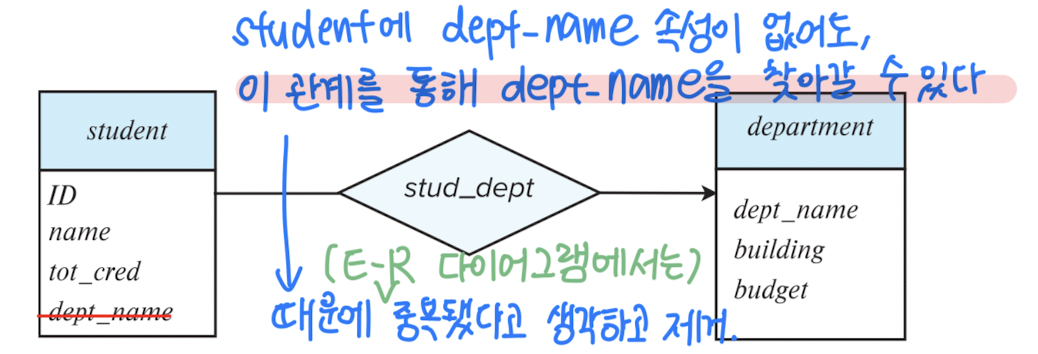 student에 dept-name 속성이 없어도,
이 관계를 통해 dept-name을 찾아갈 수 있다
student
department
ID
name
tot_cred
dept_name
stud_dept
dept_name
building
budget
(E-R 다이어그램에서는)
때문에 중복됐다고 생각하고 제거.